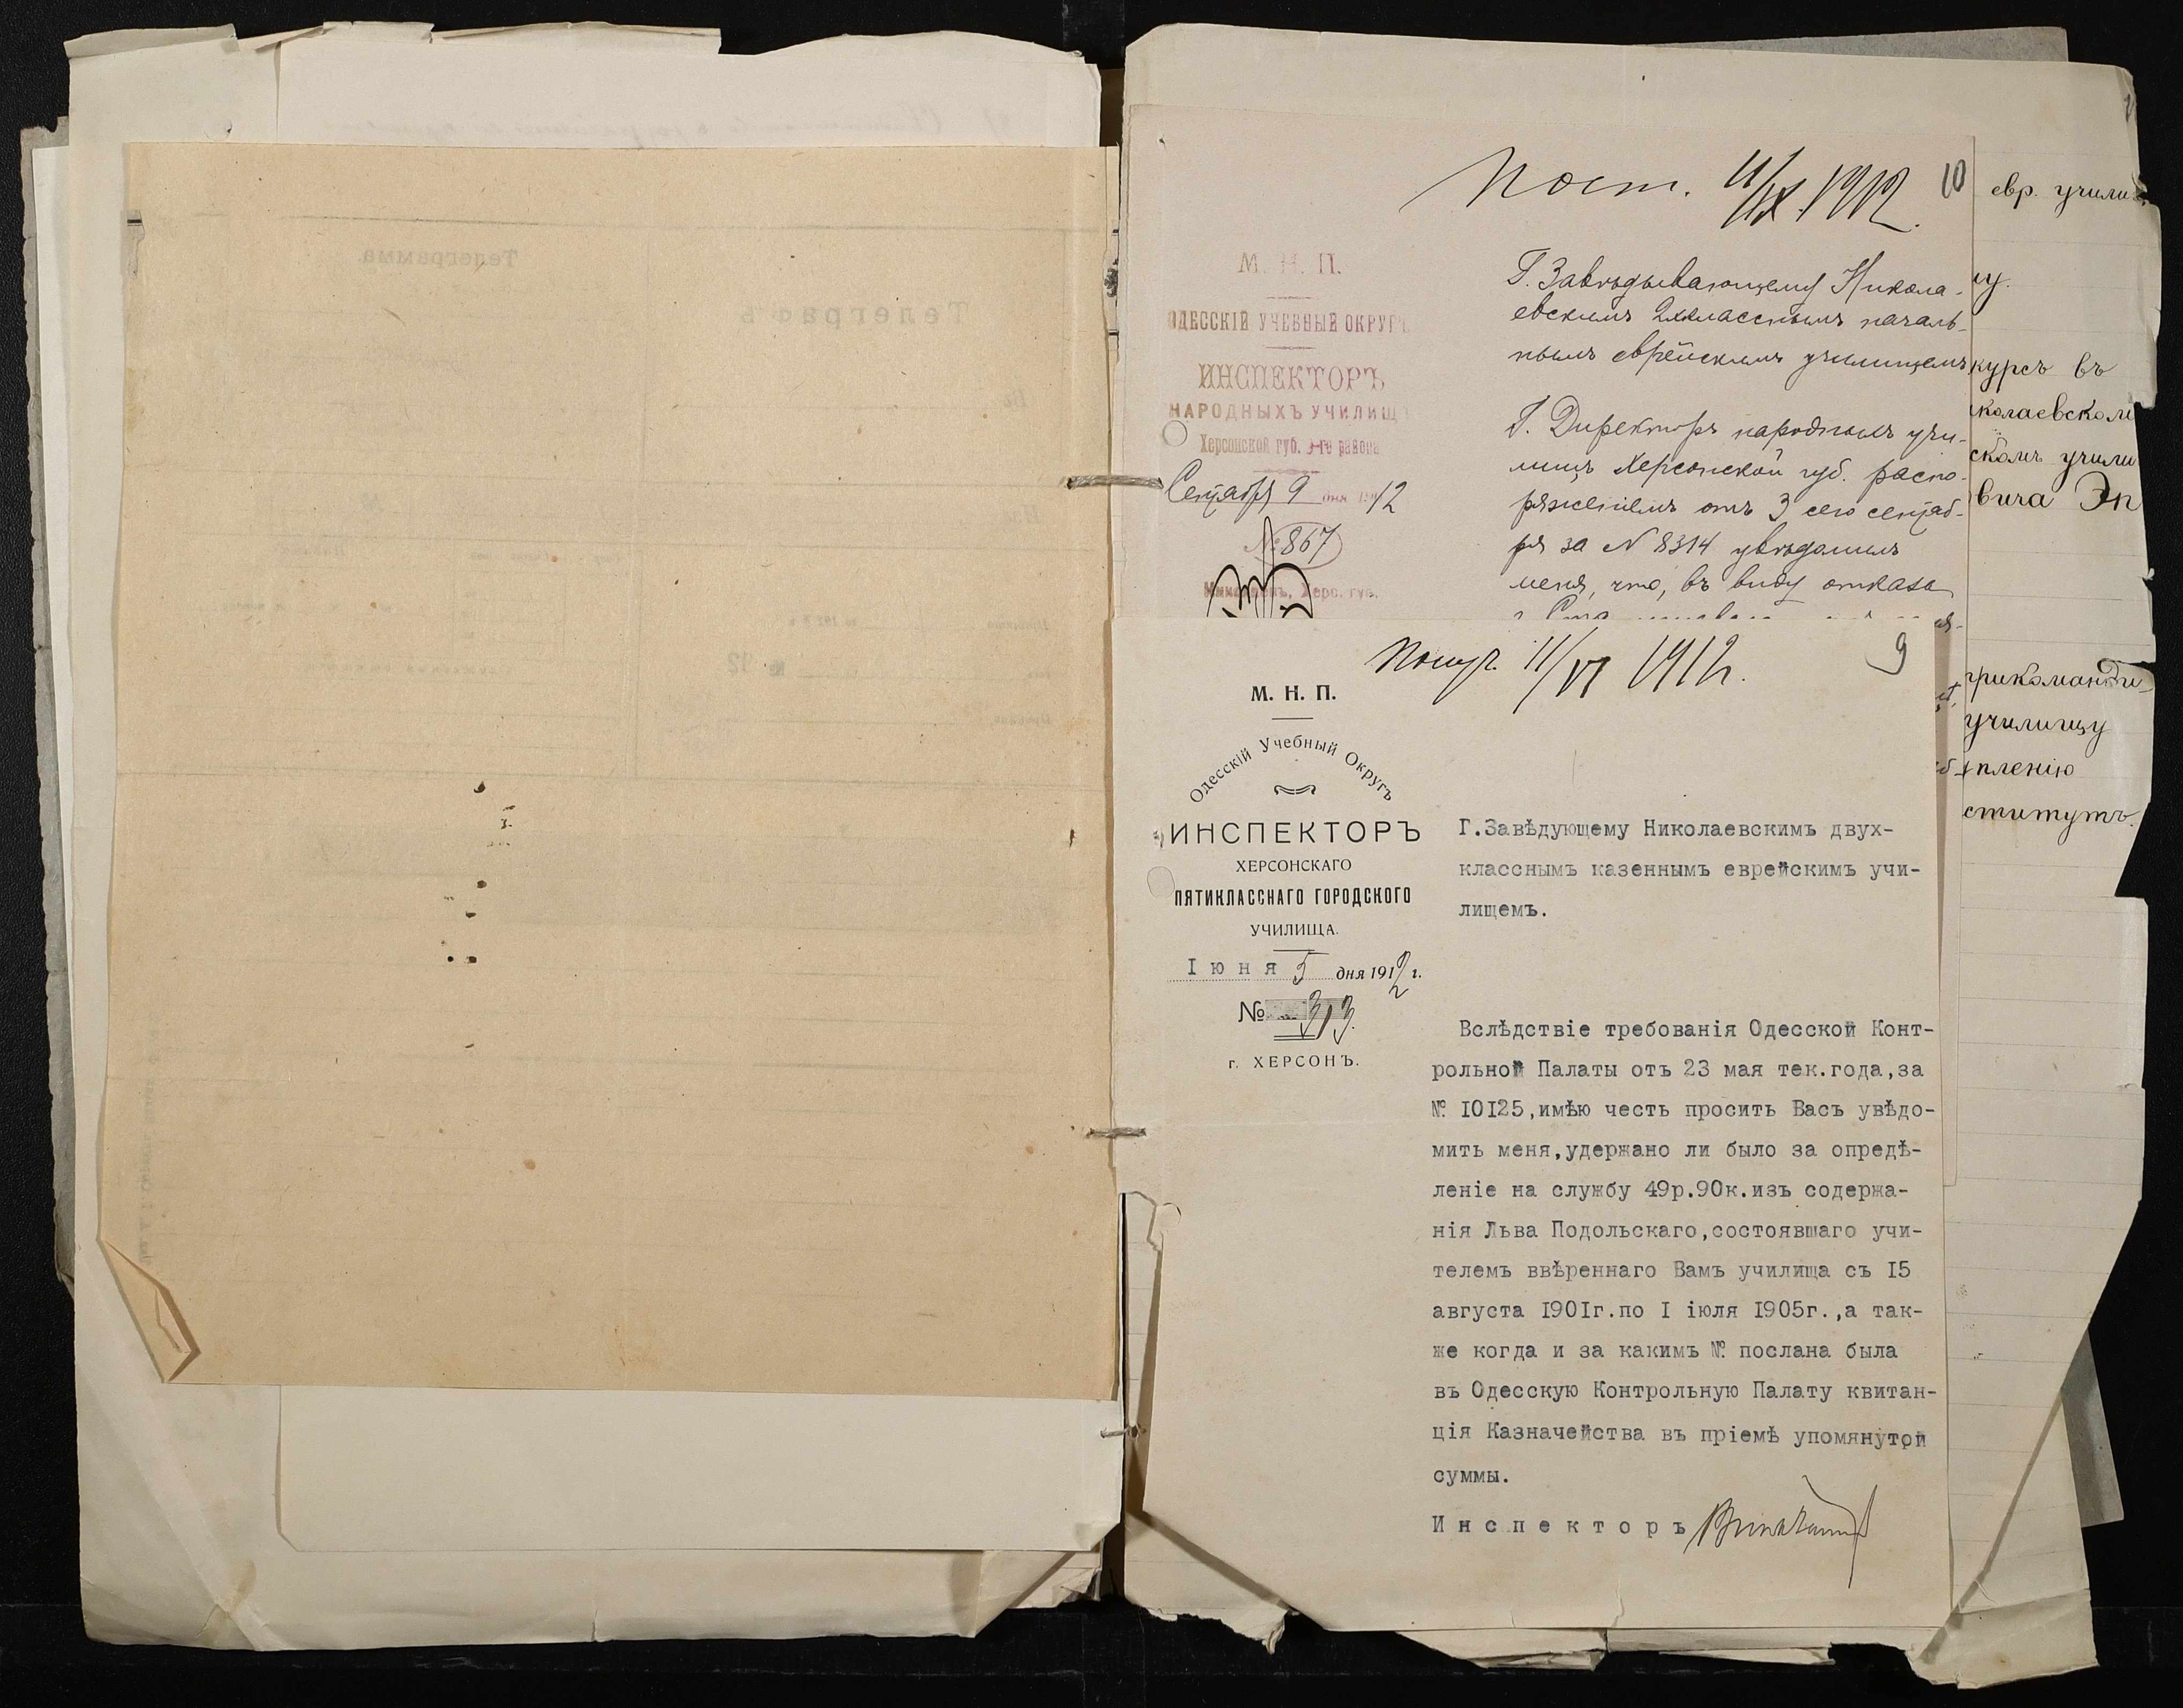 Телеграмма
Телеграфъ
Пост. 11/IX. 1912.
10
М. Н. П.
ОДЕССКІЙ УЧЕБНЫЙ ОКРУГЪ
ИНСПЕКТОРЪ
НАРОДНЫХЪ УЧИЛИЩЪ
Херсонской губ. го района
Сентября 9 дня 1912
№ 867
Херс. губ.
Г. Завѣдывающему Никола-
евскимъ 2хкласснымъ началь-
нымъ еврейскимъ училищемъ
Г. Директоръ народныхъ учи-
лищъ Херсонской губ. распо-
ряженіемъ отъ 3 сего сентяб-
ря за N 8314 увѣдомилъ
меня, что, въ виду отказа
евр. учили
му.
курсъ въ
иколаевском
скомъ учили
вича Эп
прикоманди-
училищу
пленію
ститутъ.
Получ. 11/VI 1912.
9
М. Н. П.
Одесскій Учебный Округъ
ИНСПЕКТОРЪ
ХЕРСОНСКАГО
ПЯТИКЛАССНАГО ГОРОДСКОГО
УЧИЛИЩА.
Iюня 5 дня 1912 г.
№ 313.
г. ХЕРСОНЪ.
Г.Завѣдующему Николаевскимъ двух-
класснымъ казеннымъ еврейскимъ учи-
лищемъ.
Вслѣдствіе требованія Одесской Конт-
рольной Палаты отъ 23 мая тек.года,за
№ I0I25,имѣю честь просить Васъ увѣдо-
мить меня,удержано ли было за опредѣ-
леніе на службу 49р.90к.изъ содержа-
нія Льва Подольскаго,состоявшаго учи-
телемъ ввѣреннаго Вамъ училища съ I5
августа I90Iг.по I іюля I905г.,а так-
же когда и за какимъ № послана была
въ Одесскую Контрольную Палату квитан-
ція Казначейства въ пріемѣ упомянутой
суммы.
Инспекторъ